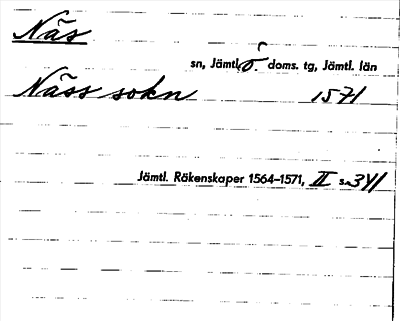 Näs
sn, Jämtl. ö. doms. tg, Jämtl. län
Näss sokn 1571
Jämtl. Räkenskaper 1564–1571, II s. 341